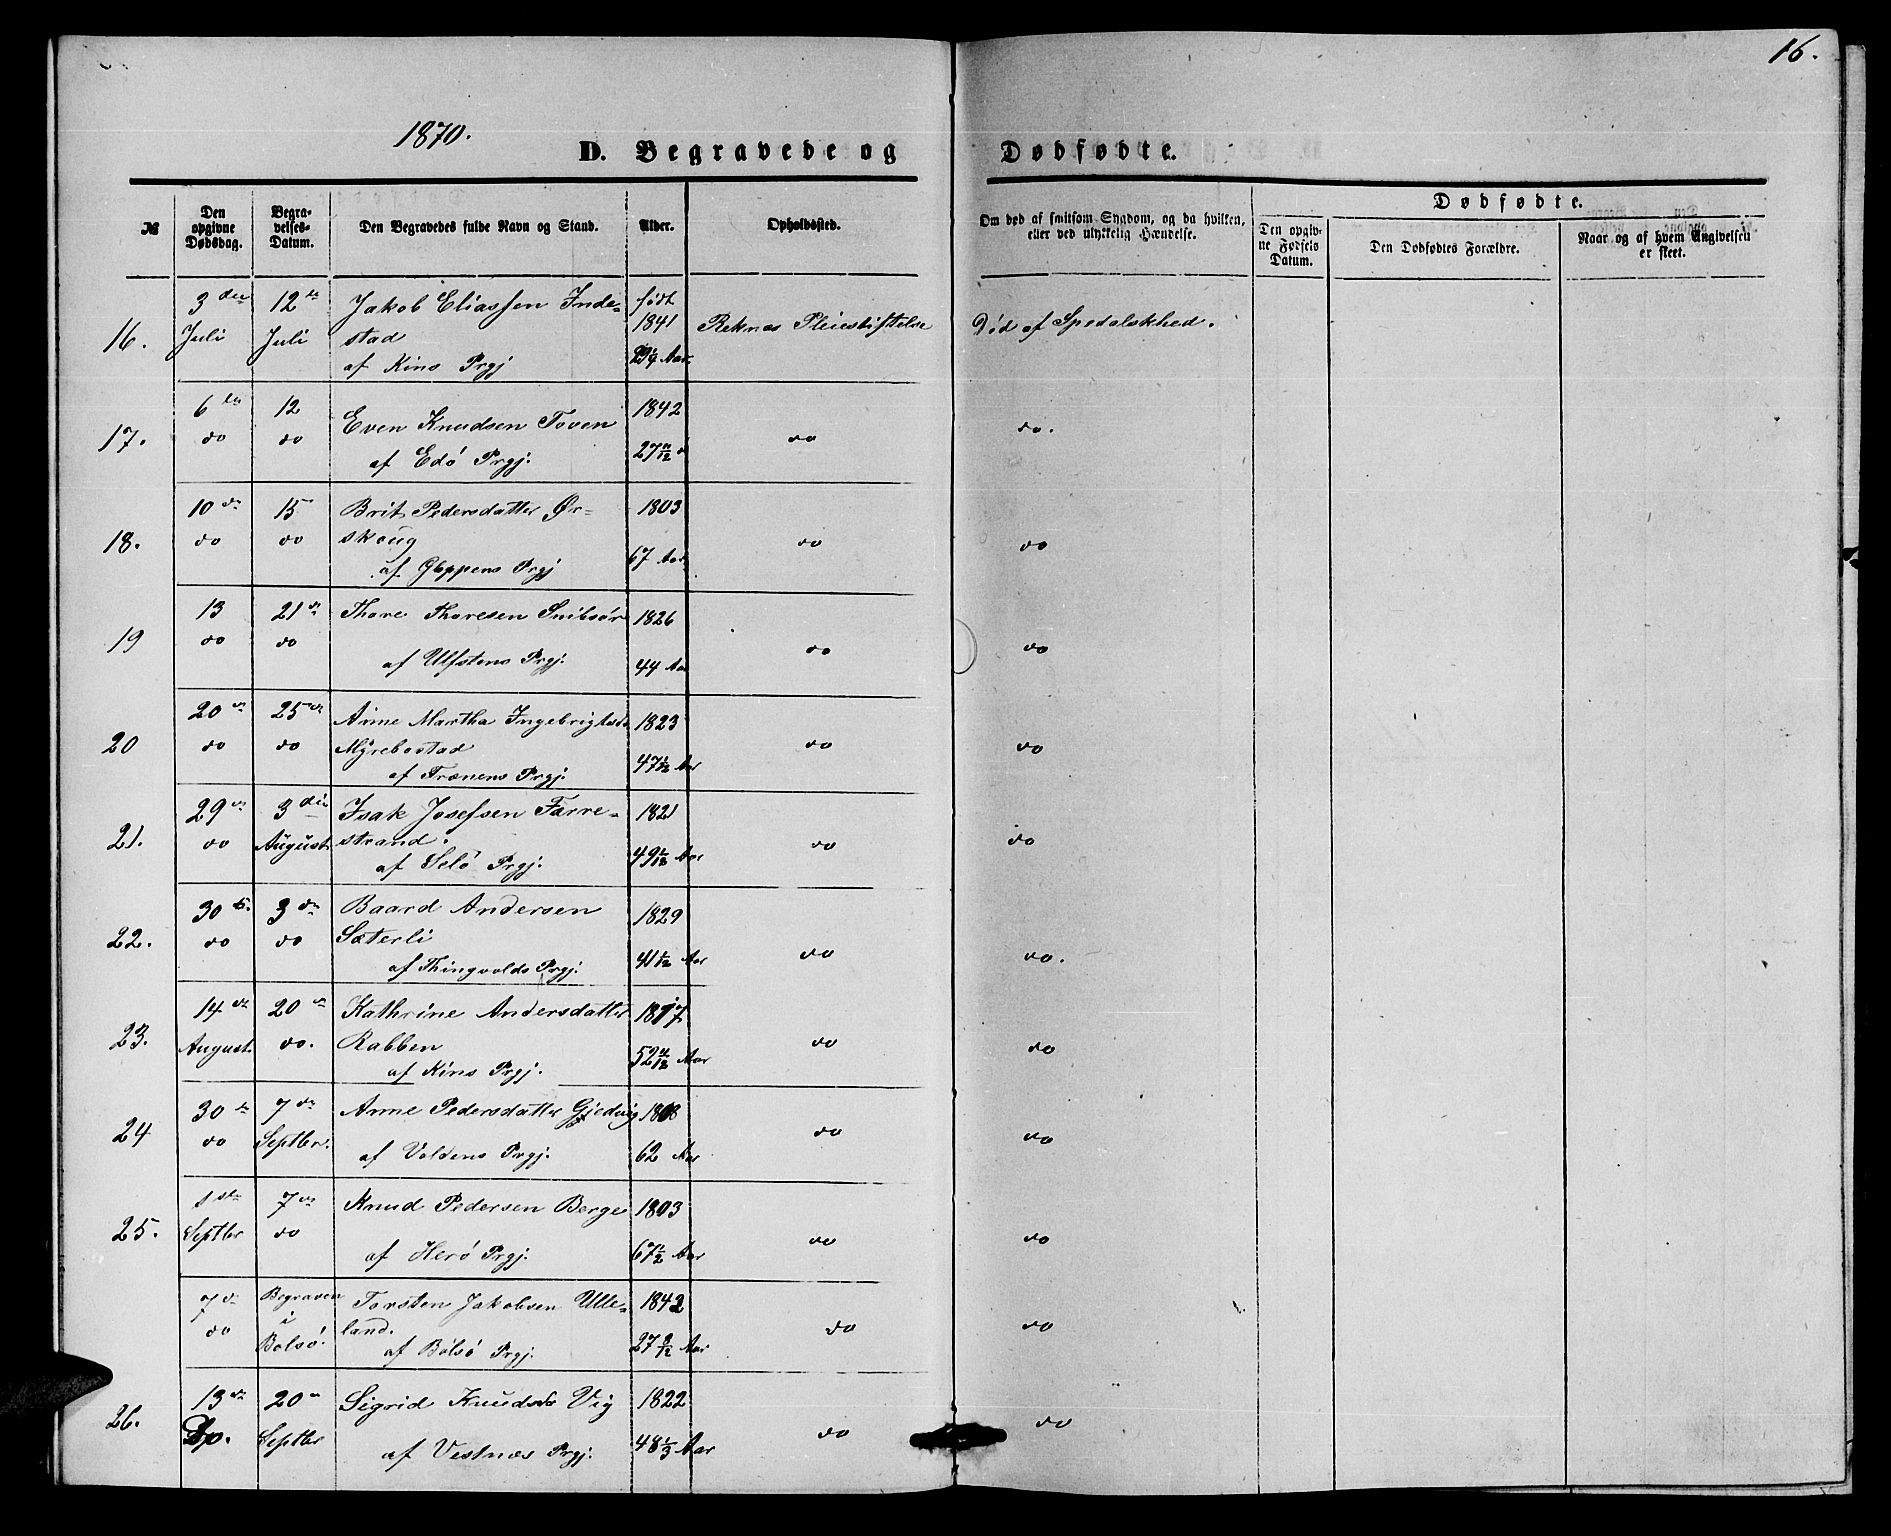 16.
1870.
D. Begravede og Dødfødte.
№
Den opgivne Dødsdag.
Begravelses-Datum.
Den Begravedes fulde Navn og Stand.
Alder.
Opholdssted.
Om død af smitsom Sygdom, og da hvilken, eller ved ulykkelig Hændelse.
Dødfødte.
Den opgivne Fødsels Datum.
Den Dødfødtes Forældre.
Naar og af hvem Angivelsen er skeet.
16.
3die Juli
12te Juli
Jakob Eliassen Inde-
stad
af Kins Prgj
født
1841
Aar
Reknæs Pleiestiftelse
Død af Spedalskhed.
17.
6te do
12 do
Even Knudsen Toven
af Edø Prgj.
1842
27 11/12 d
do
do.
18.
10de do
15 do
Brit Pedersdatter Ør-
skoug
af Gloppens Prgj
1803
67 Aar
do
do
19
13 do
21de do
Thore Thoresen Snibsør
af Ulfstens Prgj.
1826
44 Aar
do
do
20
20de do
25de do
Anne Martha Ingebrigtsd.
Myrebostad
af Frænens Prgj.
1823
47 1/12 Aar
do
do
21.
29de do
3die August
Isak Josefsen Farre-
strand.
af Selø Prgj.
1821
49 1/12 Aar
do
do
22.
30te do
3die do
Baard Andersen
Sæterli
af Thingvolds Prgj.
1829
41 1/12 Aar
do
do.
23.
14de August
20de do.
Kathrine Andersdatter
Rabben
af Kins Prgj.
1817
Aar
do
do
24
30te do
7de Septbr.
Anne Pedersdatter Gjedvig
af Voldens Prgj.
1808
62 Aar
do
do
25.
1ste Septbr
7de do
Knud Pedersen Berge
af Herø Prgj.
1803
67 1/2 Aar
do
do
7de do
Begraven
i
Bolsø.
Torsten Jakobsen Ulle-
land.
af Bolsø Prgj.
1842
27 8/12 Aar
do
do
26.
13de Do.
20de Septbr
Sigrid Knudsd. Vig
af Vestnæs Prgj.
1822
48 1/3 Aar
do
do